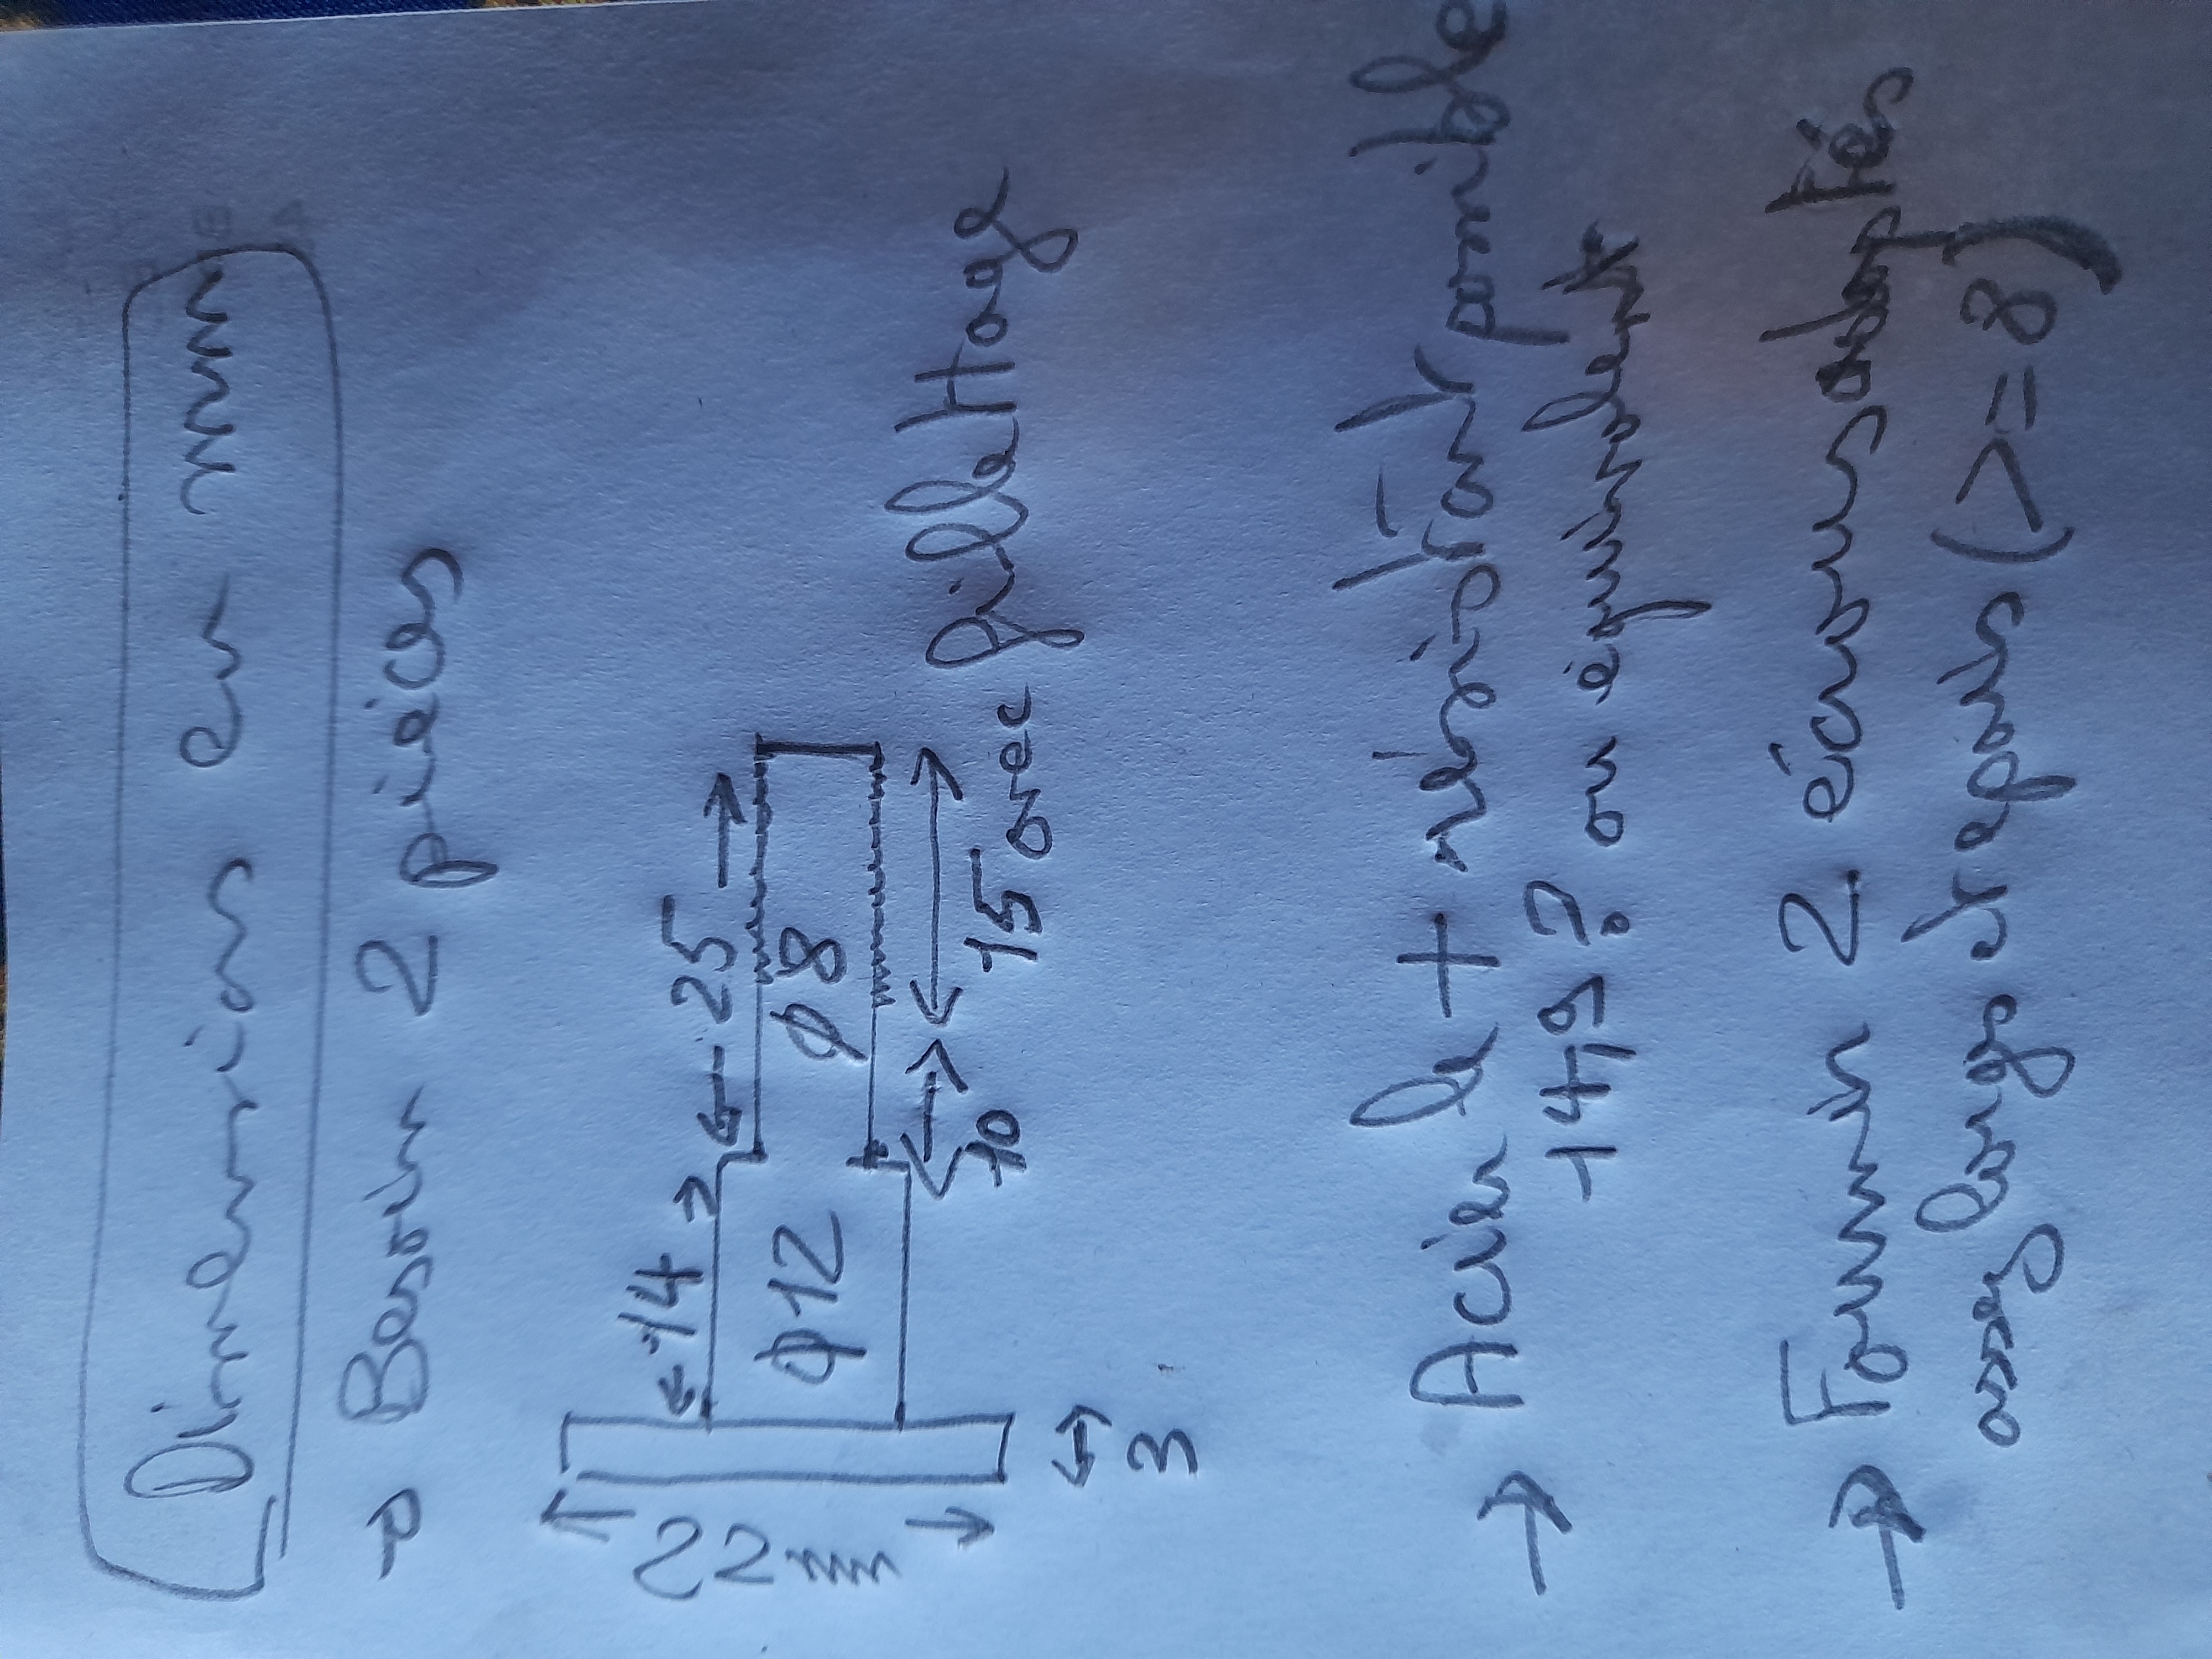 Dimensions en mm
→ Besoin 2 pièces
14
25
22mm
φ12
φ8
3
10
15 avec filletage
→ Acier le + résistant possible
14,9 ? ou équivalent
→ Fournir 2 écrous adaptés
assez larges et épais (>=8)